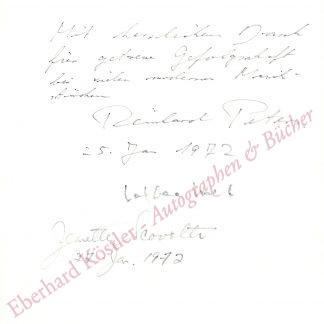 Mit herzlichem Dank
für getreue Gefolgschaft
bei vielen modernen Musik-
stücken
Reinhard Peters
25. Jan 1972
Jeanette Scovotti
27 Jan. 1972
Eberhard Köstler - Autographen & Bücher